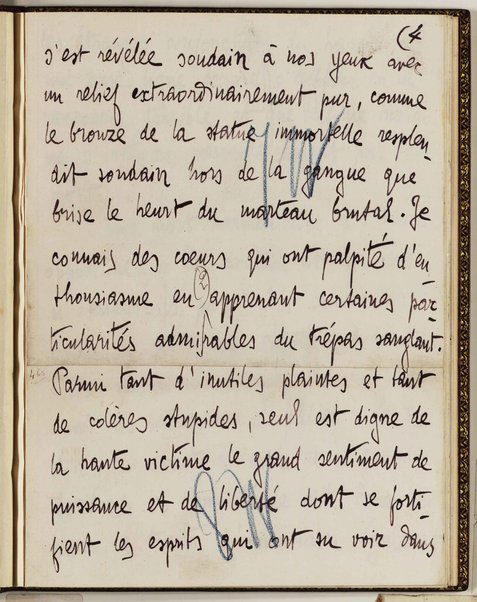 (4
s'est révélée soudain à nos yeux avec
un relief extraordinairement pur, comme
le bronze de la statue immortelle resplen-
dit soudain hors de la gangue que
brise le heurt du marteau brutal. Je
connais des cœurs qui ont palpité d'en-
thousiasme en apprenant certaines par-
ticularités admirables du trépas sanglant.
Parmi tant d'inutiles plaintes et tant
de colères stupides, seul est digne de
la haute victime le grand sentiment de
puissance et de liberté dont se forti-
fient les esprits qui ont su voir dans